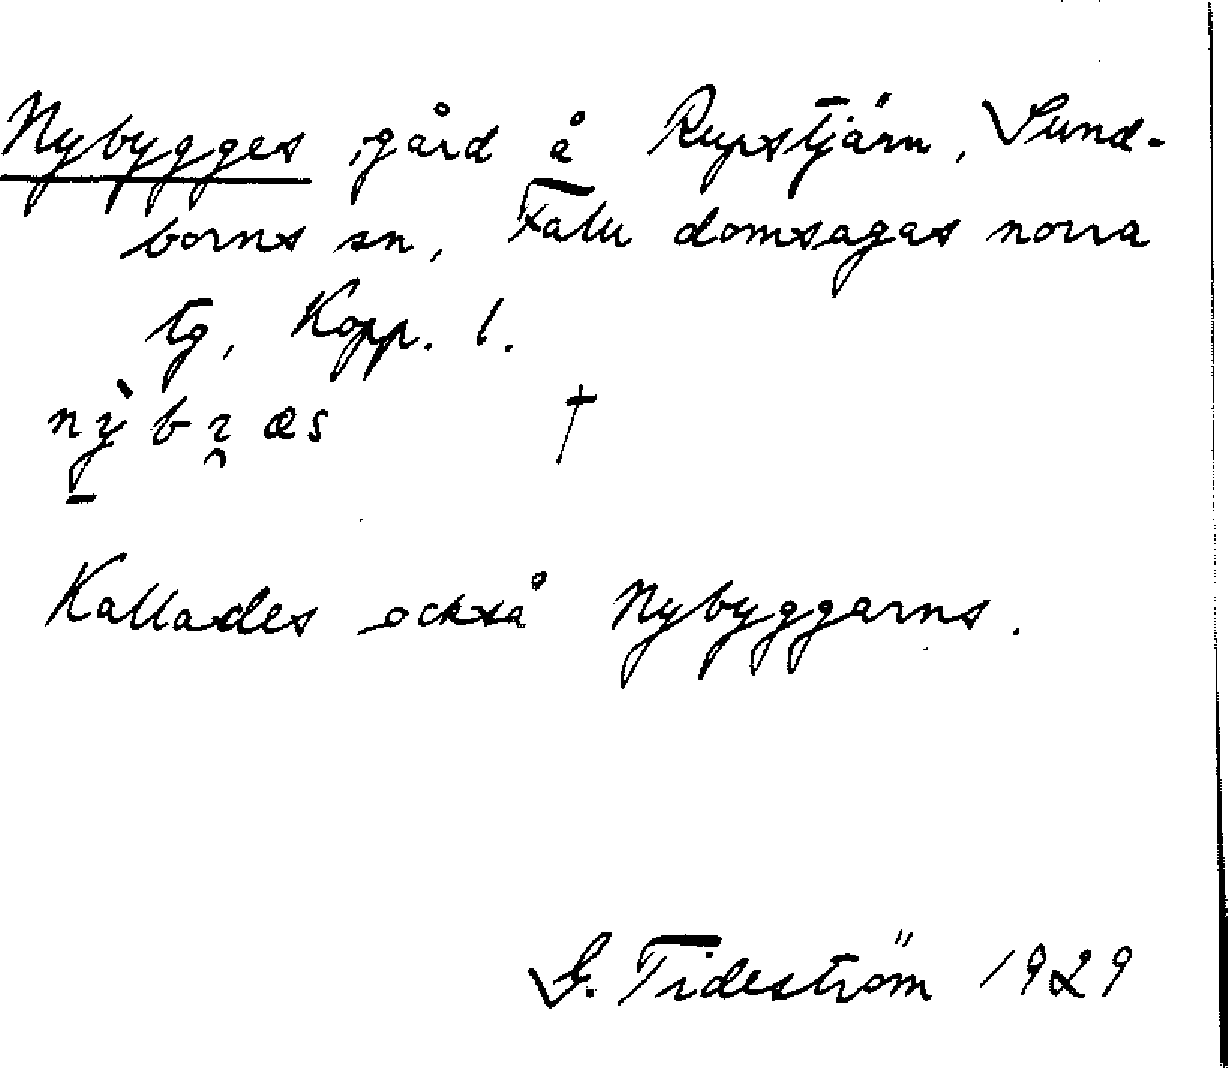 Nybygges, gård å Rupstjärn, Sund-
borns sn, Falu domsagas norra
tg, Kopp. l.
†
Kallades också Nybyggarns.
G. Tideström 1929